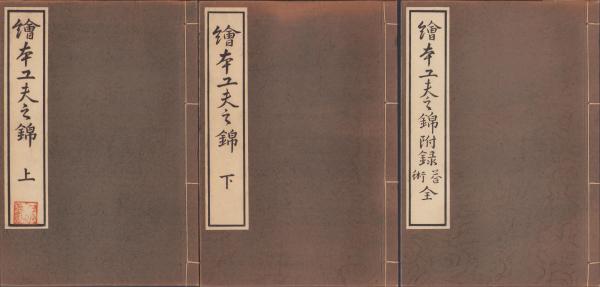 繪本工夫之錦 上
繪本工夫之錦 下
繪本工夫之錦附録答術全